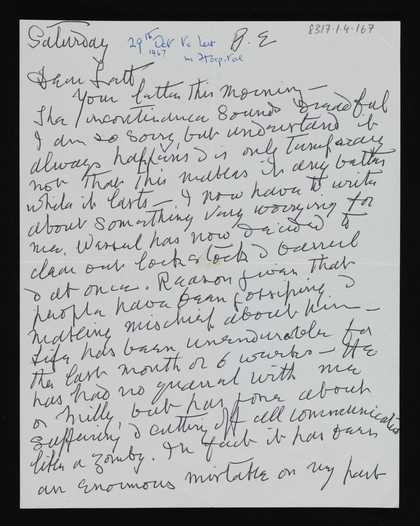 8317.1.4.167
Saturday 29th Oct
1967 in Hospital B.E
Dear
Your letter this morning —
The incontinence sounds dreadful
I am so sorry, but understand it
always happens & is only temporary
not that this makes it any better
while it lasts —. I now have to write
about something very worrying for
me. has now decided to
clear out lock stock & barrel
& at once. Reason given that
people have been gossiping &
making mischief about him —
Life has been unendurable for
the last month or 6 weeks — He
has had no quarrel with me
or Milly, but has gone about
suffering & cutting off all communication
like a zomby. In fact it has been
an enormous mistake on my part